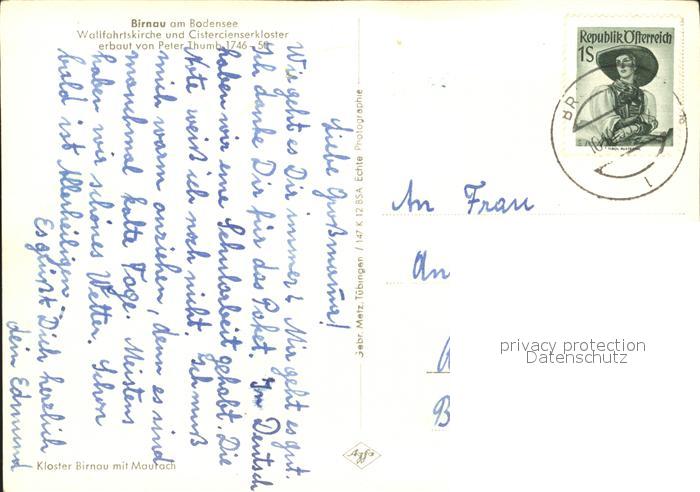 Birnau am Bodensee
Wallfahrtskirche und Cistercienserkloster
erbaut von Peter Thumb 1746 - 50
Liebe Großmama!
Wie geht es Dir immer? Mir geht es gut.
Ich danke Dir für das Paket. In Deutsch
haben wir eine Schularbeit gehabt. Die
Note weiß ich noch nicht. Ich muß
mich warm anziehen, denn es sind
manchmal kalte Tage. Meistens
haben wir schönes Wetter. Schon
bald ist Allerheiligen.
Es grüßt Dich herzlich
dein Edmund
Kloster Birnau mit Maurach
Gebr. Metz, Tübingen / 147 K 12 BSA Echte Photographie
Agfa
Republik Österreich
1S
BR
1
An Frau
An
B
privacy protection
Datenschutz